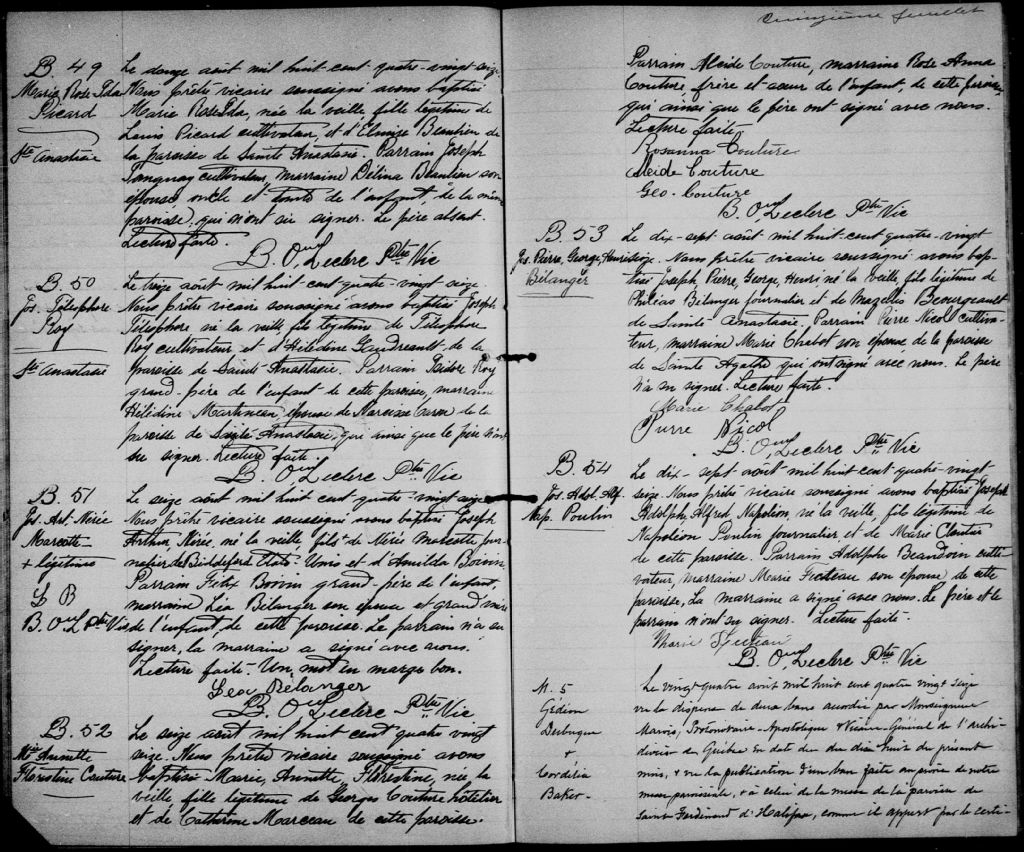 B. 49
Marie Rose Ida
Picard
Ste Anastasie
Le douze août mil huit-cent-quatre-vingt-seize
Nous prêtre vicaire soussigné avons baptisé
Marie Rose Ida, née la veille fille légitime de
Louis Picard cultivateur, et d'Elmire Beaulieu de
la paroisse de Sainte Anastasie. Parrain Joseph
Tanguay cultivateur, marraine Délina Beaulieu son
épouse, oncle et tante de l'enfant, de la même
paroisse, qui n'ont su signer. Le père absent.
Lecture faite.
B. O. Leclerc Ptre Vic
B. 50
Jos. Télesphore
Roy
Ste Anastasie
Le treize août mil huit-cent-quatre-vingt seize
Nous prêtre vicaire soussigné avons baptisé Joseph
Télesphore né la veille fils légitime de Télesphore
Roy cultivateur et d'Hélédine Gaudreault de la
paroisse de Sainte Anastasie. Parrain Isidore Roy
grand-père de l'enfant de cette paroisse, marraine
Hélédine Martineau, épouse de Narcisse Caron de la
paroisse de Sainte Anastasie, qui ainsi que le père n'ont
su signer. Lecture faite.
B. O. Leclerc Ptre Vic
B. 51
Jos. Art. Nérée
Marcotte
+ légitimes
L B
B. O. L Ptre Vic
Le seize août mil huit-cent-quatre-vingt-seize
Nous prêtre vicaire soussigné avons baptisé Joseph
Arthur, Nérée, né la veille, fils + de Nérée Marcotte jour-
nalier de Biddeford Etats-Unis et d'Amilda Boivin
Parrain Félix Boivin grand-père de l'enfant,
marraine Léa Bélanger son épouse et grand'mère
de l'enfant, de cette paroisse. Le parrain n'a su
signer, la marraine a signé avec nous.
Lecture faite. Un mot en marge bon.
Lea Belanger
B. O. Leclerc Ptre Vic
B. 52
Mie Annette
Florestine Couture
Le seize août mil huit cent quatre vingt
seize. Nous prêtre vicaire soussigné avons
baptisé Marie, Annette, Florestine, née la
veille fille légitime de Georges Couture hôtelier
et de Catherine Marceau de cette paroisse.
Cinquième feuillet
Parrain Alcide Couture, marraine Rose Anna
Couture, frère et sœur de l'enfant, de cette paroisse,
qui ainsi que le père ont signé avec nous.
Lecture faite
Rosanna Couture
Alcide Couture
Geo. Couture
B. O. Leclerc Ptre Vic
B. 53
Jos. Pierre, George, Henri
Bélanger
Le dix-sept août mil huit-cent-quatre-vingt
seize. Nous prêtre vicaire soussigné avons bap-
tisé Joseph, Pierre, George, Henri né la veille, fils légitime de
Philéas Bélanger journalier et de Mazélie Beaurgeault
de Sainte Anastasie, Parrain Pierre Nicol cultiva-
teur, marraine Marie Chabot son épouse de la paroisse
de Sainte Agathe qui ont signé avec nous. Le père
n'a su signer. Lecture faite.
Marie Chabot
Pierre Nicol
B. O. Leclerc Ptre Vic
B. 54
Jos. Adol. Alf.
Nap. Poulin
Le dix-sept août mil huit-cent-quatre-vingt-
seize. Nous prêtre vicaire soussigné avons baptisé Joseph
Adolph, Alfred, Napoléon, né la veille, fils légitime de
Napoléon Poulin journalier et de Marie Cloutier
de cette paroisse. Parrain Adolphe Beaudoin culti-
vateur, marraine Marie Fecteau son épouse, de cette
paroisse, La marraine a signé avec nous. Le père et le
parrain n'ont su signer. Lecture faite.
Marie Fecteau
B. O. Leclerc Ptre Vic
M. 5
Gédéon
Dubuque
+
Cordélia
Baker
Le vingt quatre août mil huit cent quatre vingt seize
vu la dispense de deux bans accordée par Monseigneur
Marois, Protonotaire Apostolique & Vicaire Général de l'archi-
diocèse de Québec en date du dix huit du présent
mois, & vu la publication d'un ban faite au prône de notre
messe paroissiale, & à celui de la messe de la paroisse de
Saint Ferdinand d'Halifax, comme il appert par le certi-